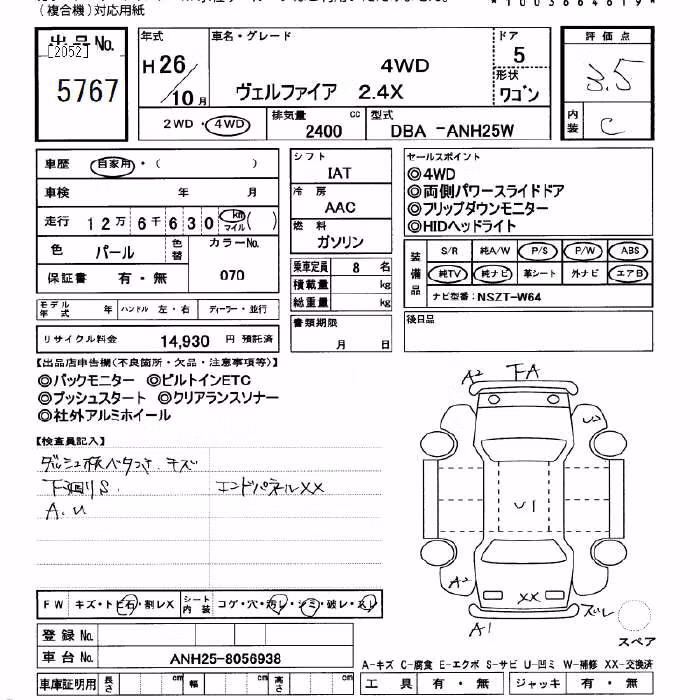 (複合機)対応用紙
*1003664619*
出品 No.
[2052]
5767
年式
H 26
10 月
車名・グレード
4WD
ヴェルファイア 2.4X
ドア
5
形状
ワゴン
評価点
3.5
内装 C
2WD・4WD
排気量 cc
2400
型式
DBA -ANH25W
車歴 自家用・( )
車検 年 月
走行 12万6千630 km マイル ( )
色 パール 色替 カラーNo.
070
保証書 有・無
モデル年式 年 ハンドル 左・右 ディーラー・並行
リサイクル料金 14,930 円 預託済
シフト
IAT
冷房
AAC
燃料
ガソリン
乗車定員 8 名
積載量 kg
総重量 kg
書類期限
月 日
セールスポイント
◎4WD
◎両側パワースライドドア
◎フリップダウンモニター
◎HIDヘッドライト
装備品
S/R 純A/W P/S P/W ABS
純TV 純ナビ 革シート 外ナビ エアB
ナビ型番:NSZT-W64
後日品
【出品店申告欄(不良箇所・欠品・注意事項等)】
◎バックモニター ◎ビルトインETC
◎プッシュスタート ◎クリアランスソナー
◎社外アルミホイール
【検査員記入】
ダッシュ板ベタつき キズ
下回りS. エンドパネルXX
A.U
A2 FA
U1
A2 XX
A1 ズレ
スペア
FW キズ・トビ石・割レX シート内装 コゲ・穴・汚レ・シミ・破レ・スレ
登録 No.
車台 No. ANH25-8056938
車庫証明用 長さ cm 幅 cm 高さ cm
A-キズ C-腐食 E-エクボ S-サビ U-凹ミ W-補修 XX-交換済
工具 有・無 ジャッキ 有・無